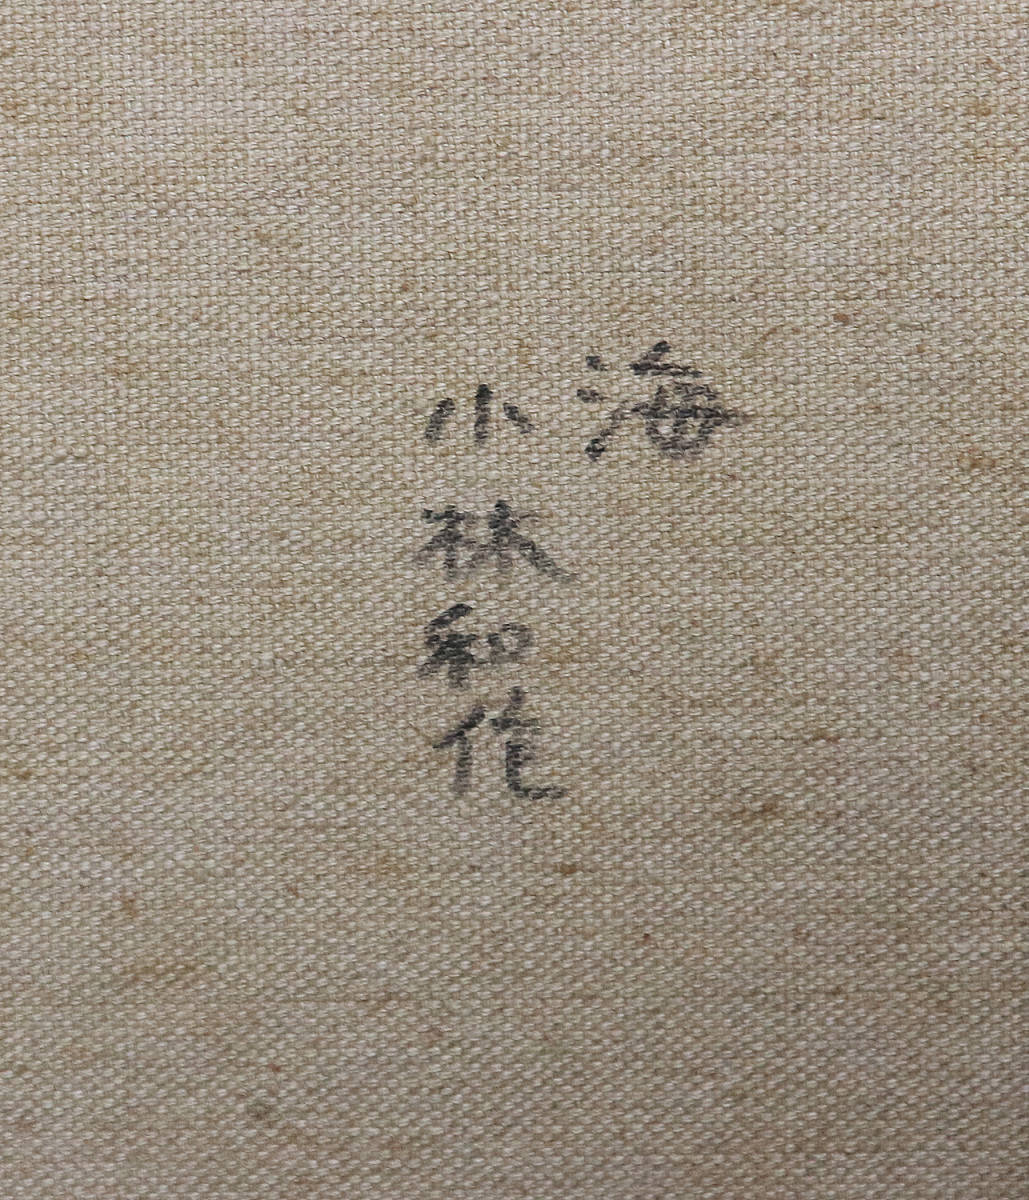 海
小林和作